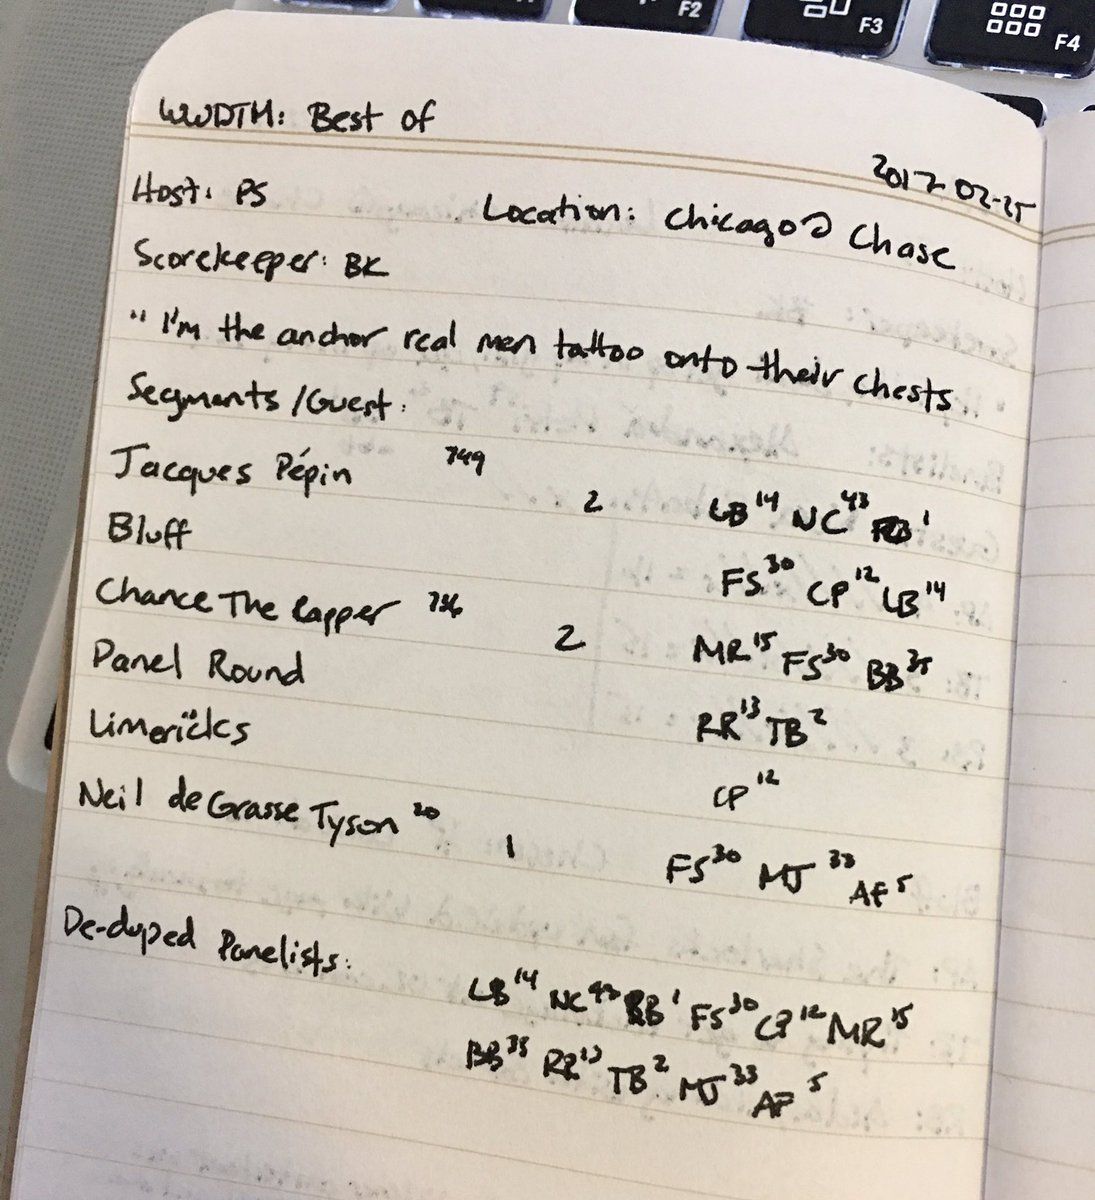 F2
F3
F4
WWDTM: Best of
2017-02-25
Host: PS Location: Chicago @ Chase
Scorekeeper: BK
"I'm the anchor real men tattoo onto their chests
Segments/Guest:
Jacques Pépin 749 2 LB 14 NC 43 RB 1
Bluff FS 30 CP 12 LB 14
Chance The Rapper 756 2 MR 15 FS 30 BB 35
Panel Round RR 13 TB 2
Limericks CP 12
Neil deGrasse Tyson 20 1 FS 30 MJ 33 AF 5
De-duped Panelists:
LB 14 NC 43 RB 1 FS 30 CP 12 MR 15
BB 35 RR 13 TB 2 MJ 33 AF 5